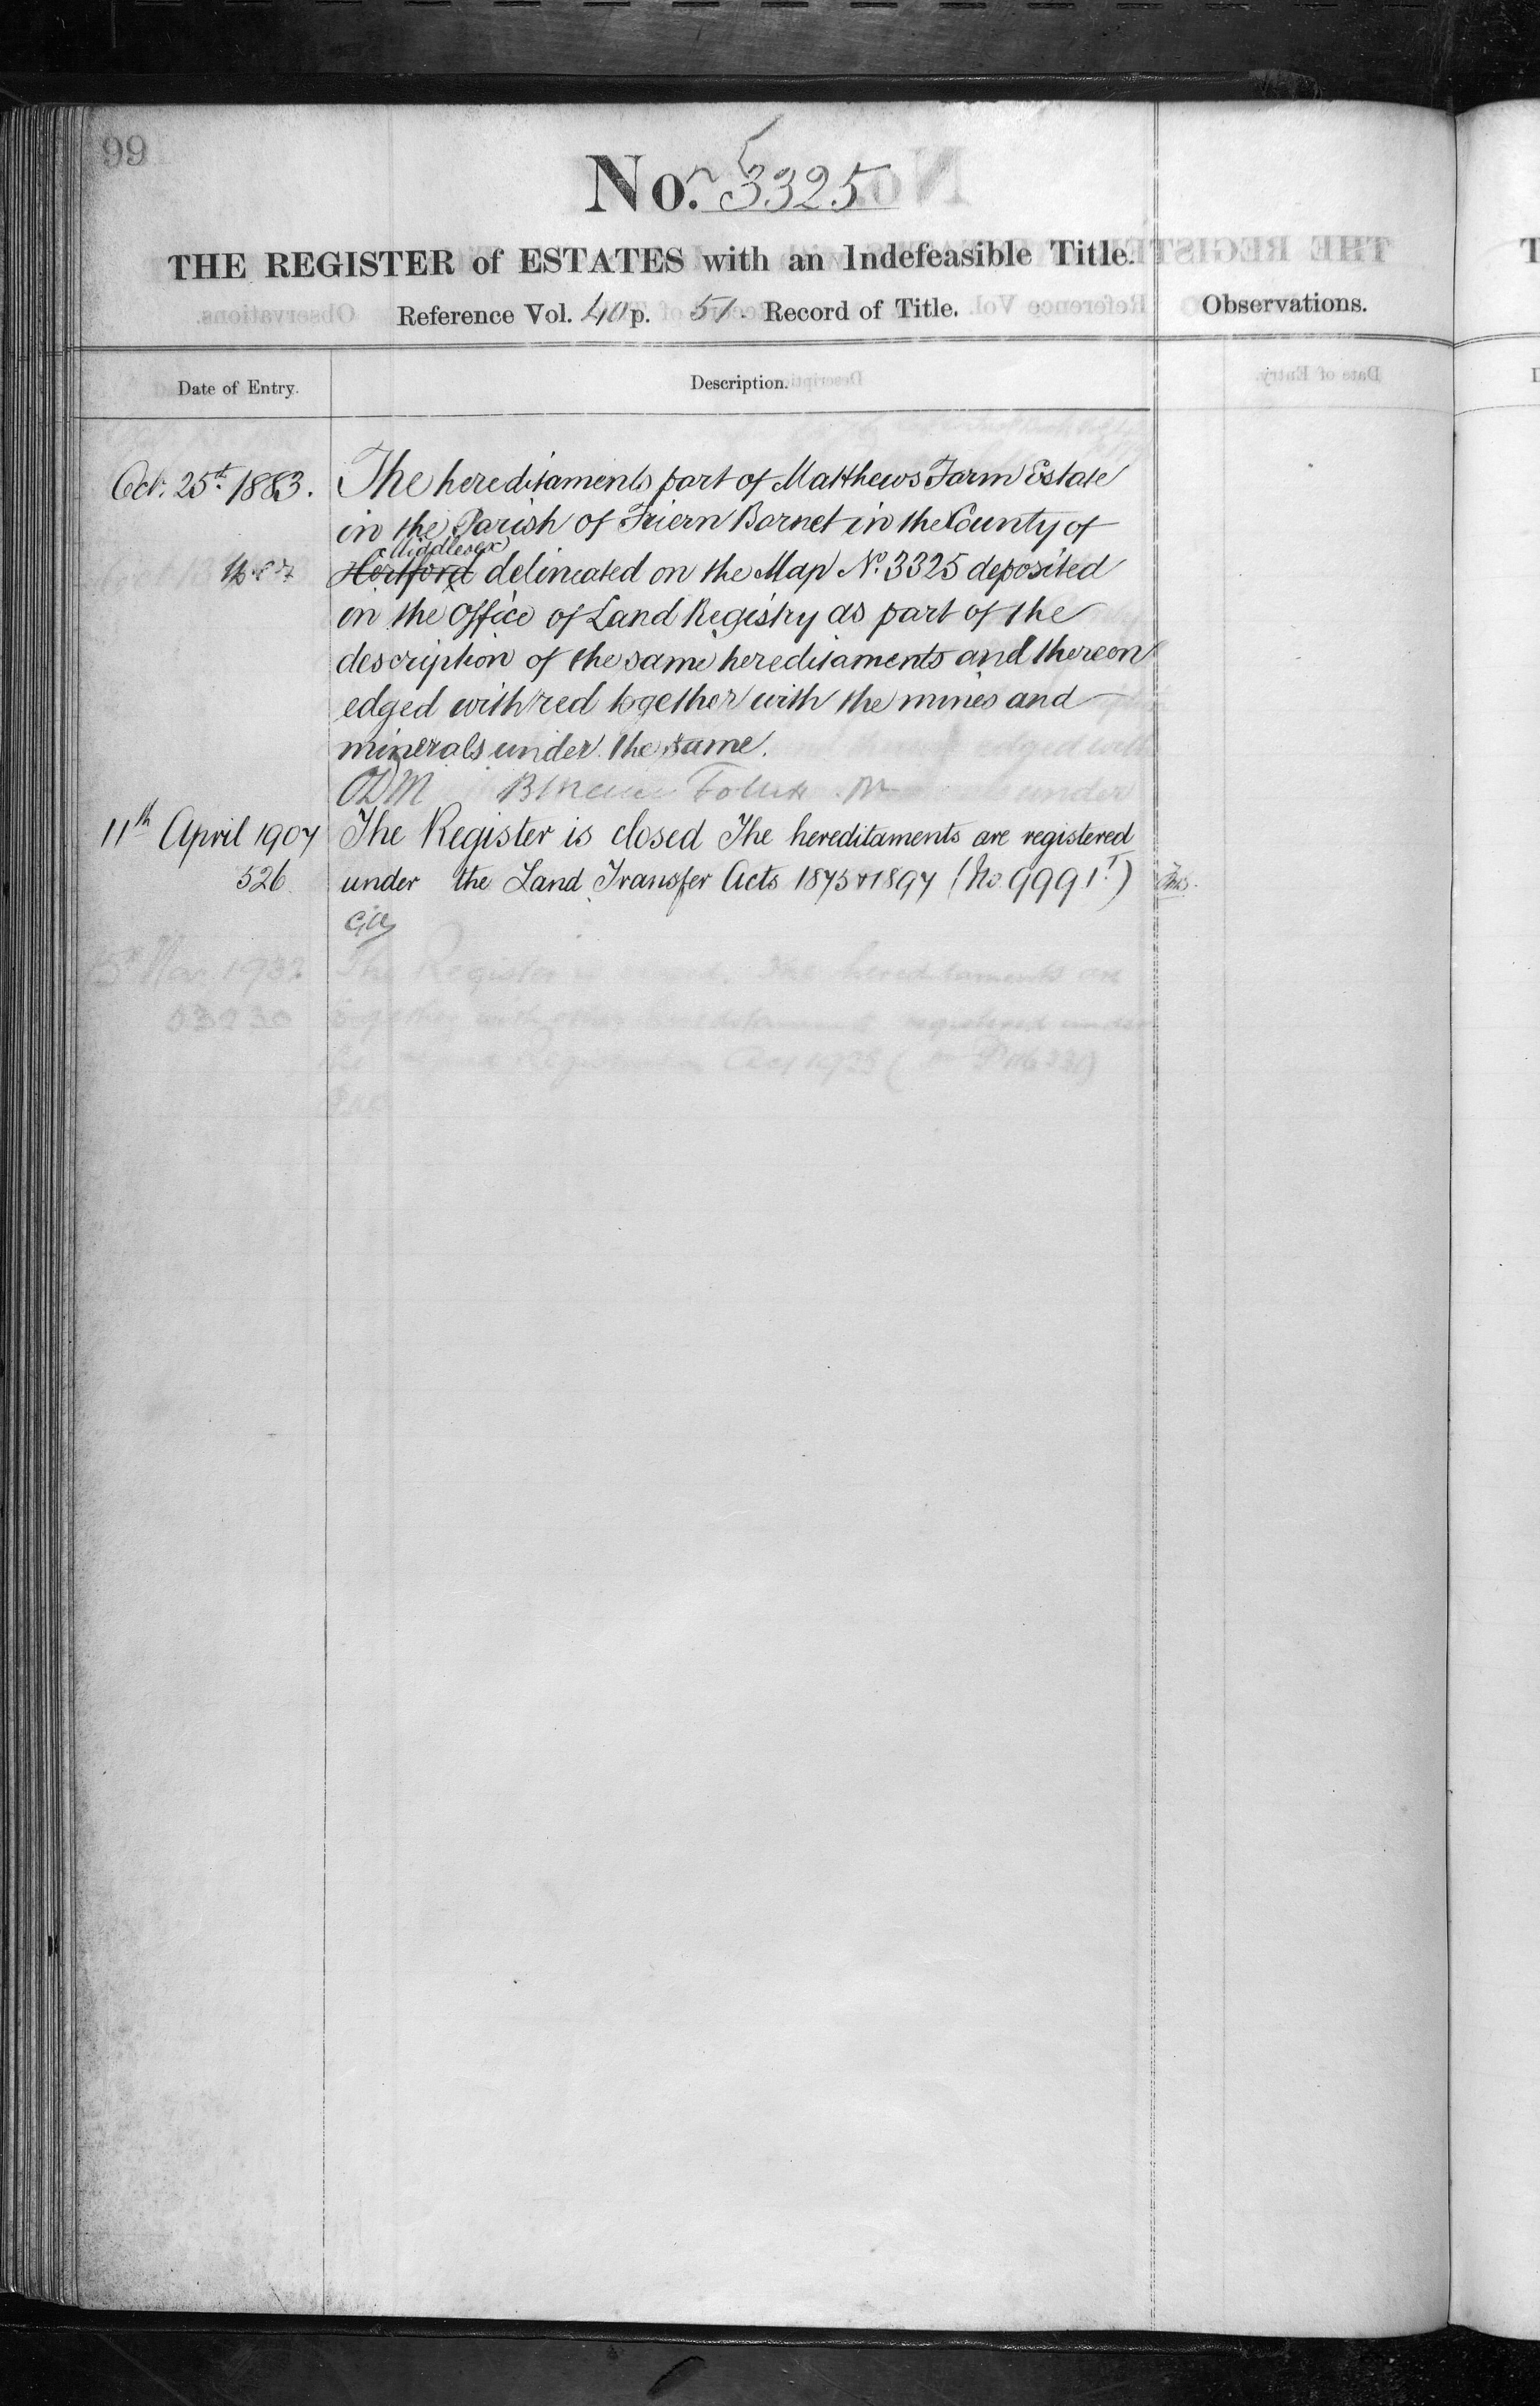 99
No. 3325
THE REGISTER of ESTATES with an Indefeasible Title.
Reference Vol. 40 p. 51. Record of Title.
Observations.
Date of Entry.
Description.
Oct. 25th 1883.
The hereditaments part of Matthews Farm Estate
in the Parish of Friern Barnet in the County of
Middlesex
Hertford delineated on the Map No. 3325 deposited
in the Office of Land Registry as part of the
description of the same hereditaments and thereon
edged with red together with the mines and
minerals under the same.
11th April 1907
The Register is closed The hereditaments are registered
526
under the Land Transfer Acts 1875 & 1897 (No. 9991T)